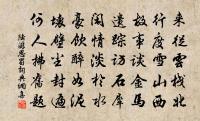 来從雲棧北
行度雪山西
故事談金馬
遺踪訪石犀
閑情淡於水
豪飲醉如泥
壞壁塵封遍
何人拂舊題
陸游思蜀